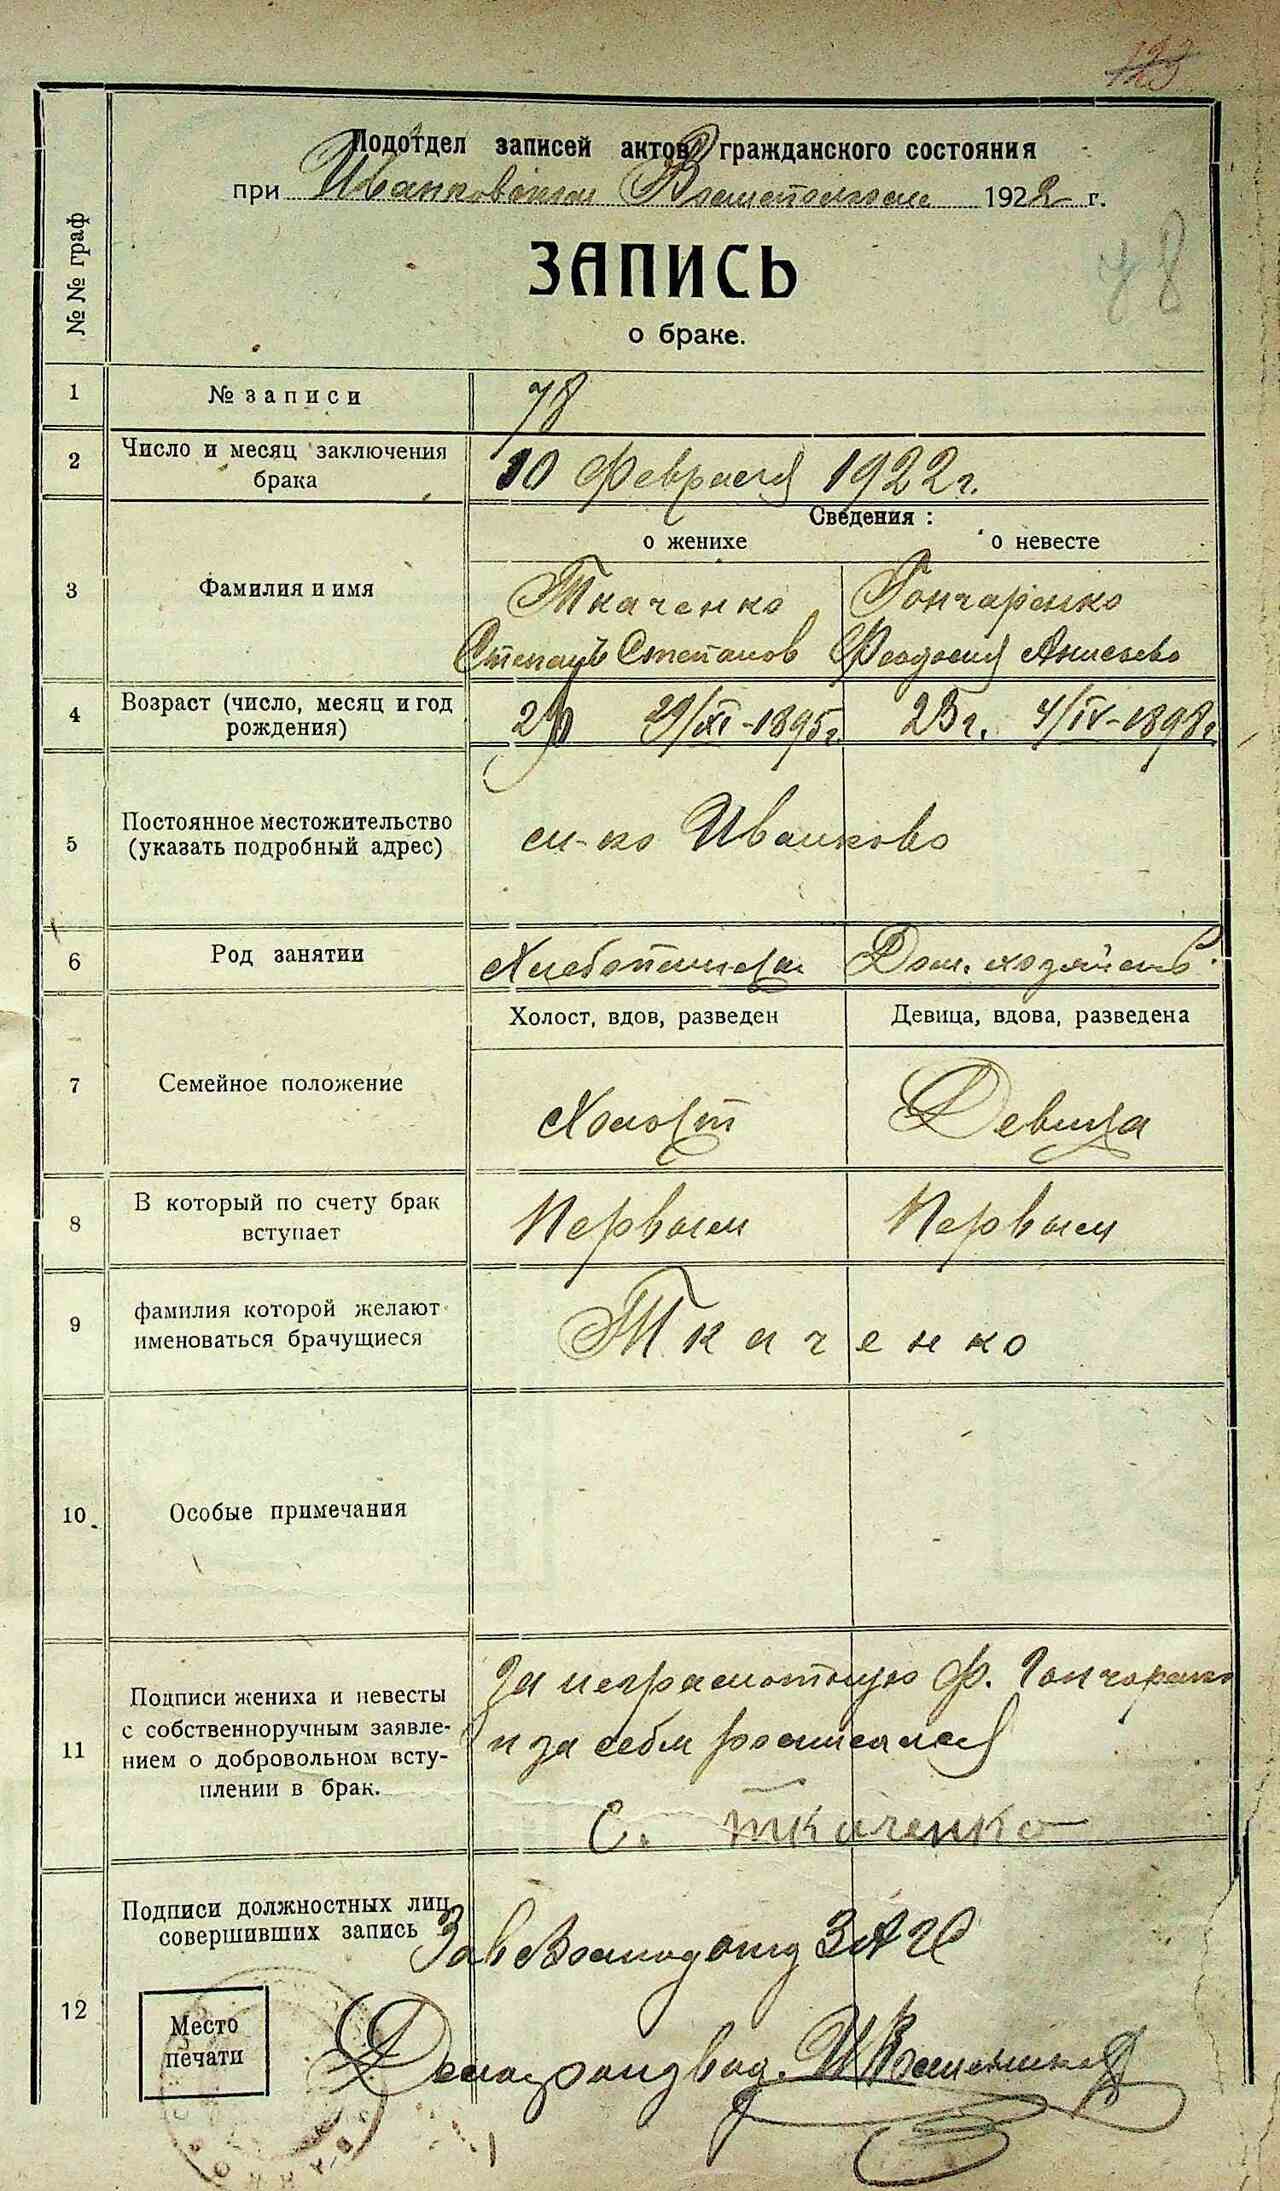 123
Подотдел записей актов гражданского состояния
при Иванковском Волисполкоме 1922 г.
78
№ № граф
ЗАПИСЬ
о браке.
1 № записи 78
2 Число и месяц заключения брака 10 Февраля 1922 г.
Сведения:
о женихе о невесте
3 Фамилия и имя Ткаченко Гончаренко
Степанъ Степанов Феодосия
4 Возраст (число, месяц и год рождения) 29/XI-1895г. 23 г. 4/IV-1898г
5 Постоянное местожительство (указать подробный адрес) м-ко Иванково
6 Род занятии Хлебопашец Дом. хозяйств.
Холост, вдов, разведен Девица, вдова, разведена
7 Семейное положение Холост Девица
8 В который по счету брак вступает Первым Первым
9 фамилия которой желают именоваться брачущиеся Ткаченко
10 Особые примечания
11 Подписи жениха и невесты с собственноручным заявле-
нием о добровольном всту-
плении в брак.
За неграмотную Ф. Гончаренко
и за себя росписался
С. Ткаченко
12 Подписи должностных лиц совершивших запись
Зав Волподотд ЗАГС
Место печати
Делопроизвод.